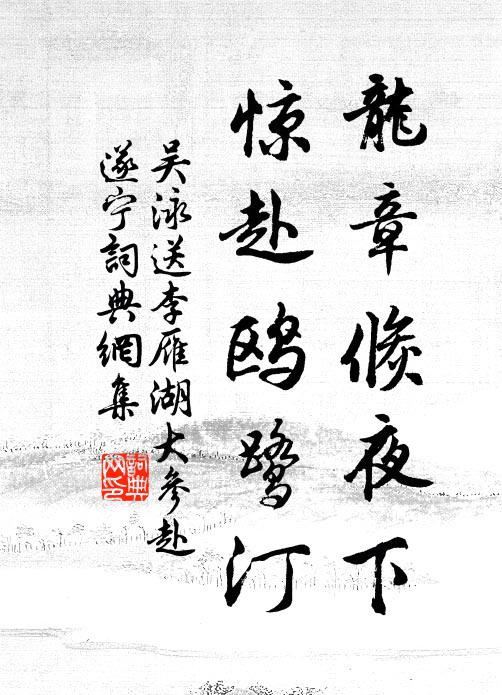 龍章倏夜下
惊赴鸥鹭汀
吴泳送李雁湖大参赴
遂宁詞典網集
詞典網印